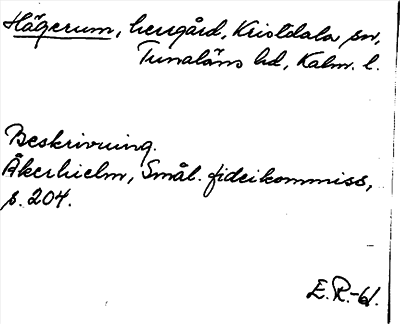 Hägerum, herrgård, Kristdala sn,
Tunaläns hd, Kalm. l.
Beskrivning.
Åkerhielm, Smål. fideikommiss,
s. 204.
E.R.-61.